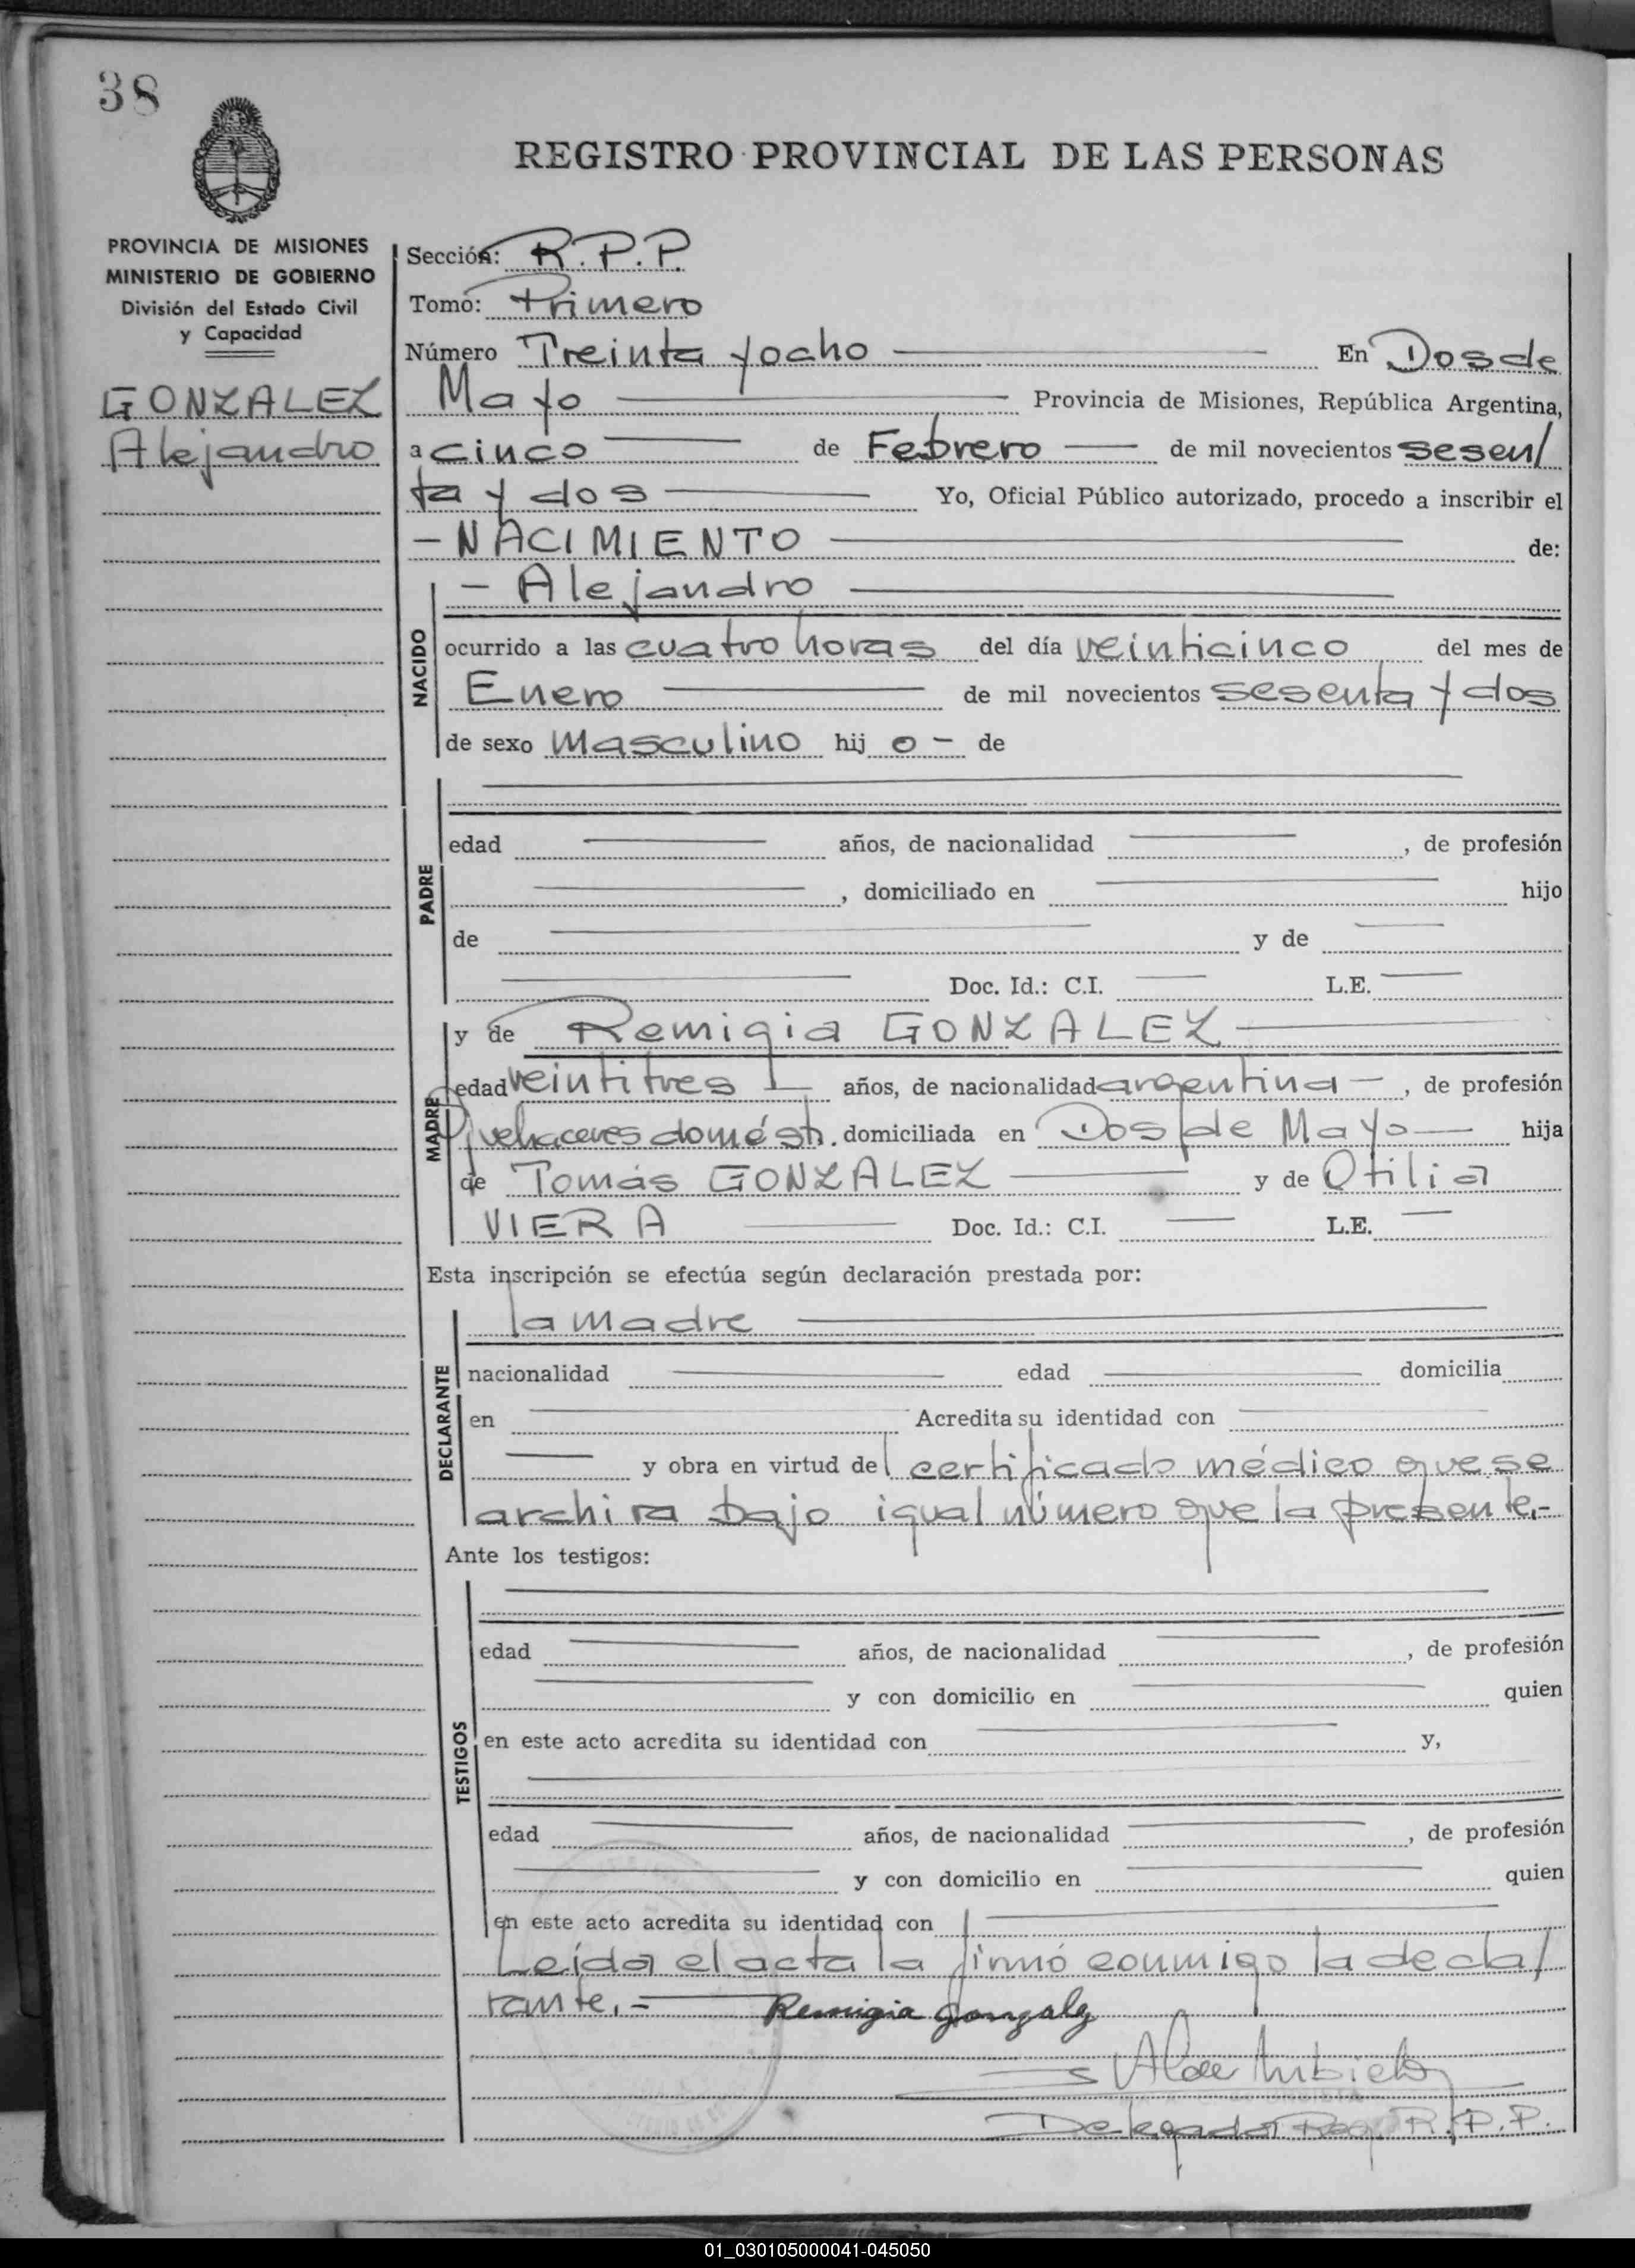 38
REGISTRO PROVINCIAL DE LAS PERSONAS
PROVINCIA DE MISIONES
MINISTERIO DE GOBIERNO
División del Estado Civil
y Capacidad
GONZALEZ
Alejandro
Sección: R.P.P.
Tomo: Primero
Número Treinta y ocho En Dos de
Mayo Provincia de Misiones, República Argentina,
a cinco de Febrero de mil novecientos sesen/
ta y dos Yo, Oficial Público autorizado, procedo a inscribir el
- NACIMIENTO de:
- Alejandro
NACIDO
ocurrido a las cuatro horas del día veinticinco del mes de
Enero de mil novecientos sesenta y dos
de sexo Masculino hij o - de
PADRE
edad años, de nacionalidad , de profesión
, domiciliado en hijo
de y de
Doc. Id.: C.I. L.E.
MADRE
y de Remigia GONZALEZ
edad veintitres años, de nacionalidad argentina - , de profesión
quehaceres domést. domiciliada en Dos de Mayo hija
de Tomás GONZALEZ y de Otilia
VIERA Doc. Id.: C.I. L.E.
Esta inscripción se efectúa según declaración prestada por:
la madre
DECLARANTE
nacionalidad edad domicilia
en Acredita su identidad con
y obra en virtud del certificado médico que se
archiva bajo igual número que la presente.-
Ante los testigos:
TESTIGOS
edad años, de nacionalidad , de profesión
y con domicilio en quien
en este acto acredita su identidad con y,
edad años, de nacionalidad , de profesión
y con domicilio en quien
en este acto acredita su identidad con
Leída el acta la firmó conmigo la decla/
rante.-
Remigia Gonzalez
Delegado Reg. R.P.P.
01_030105000041-045050